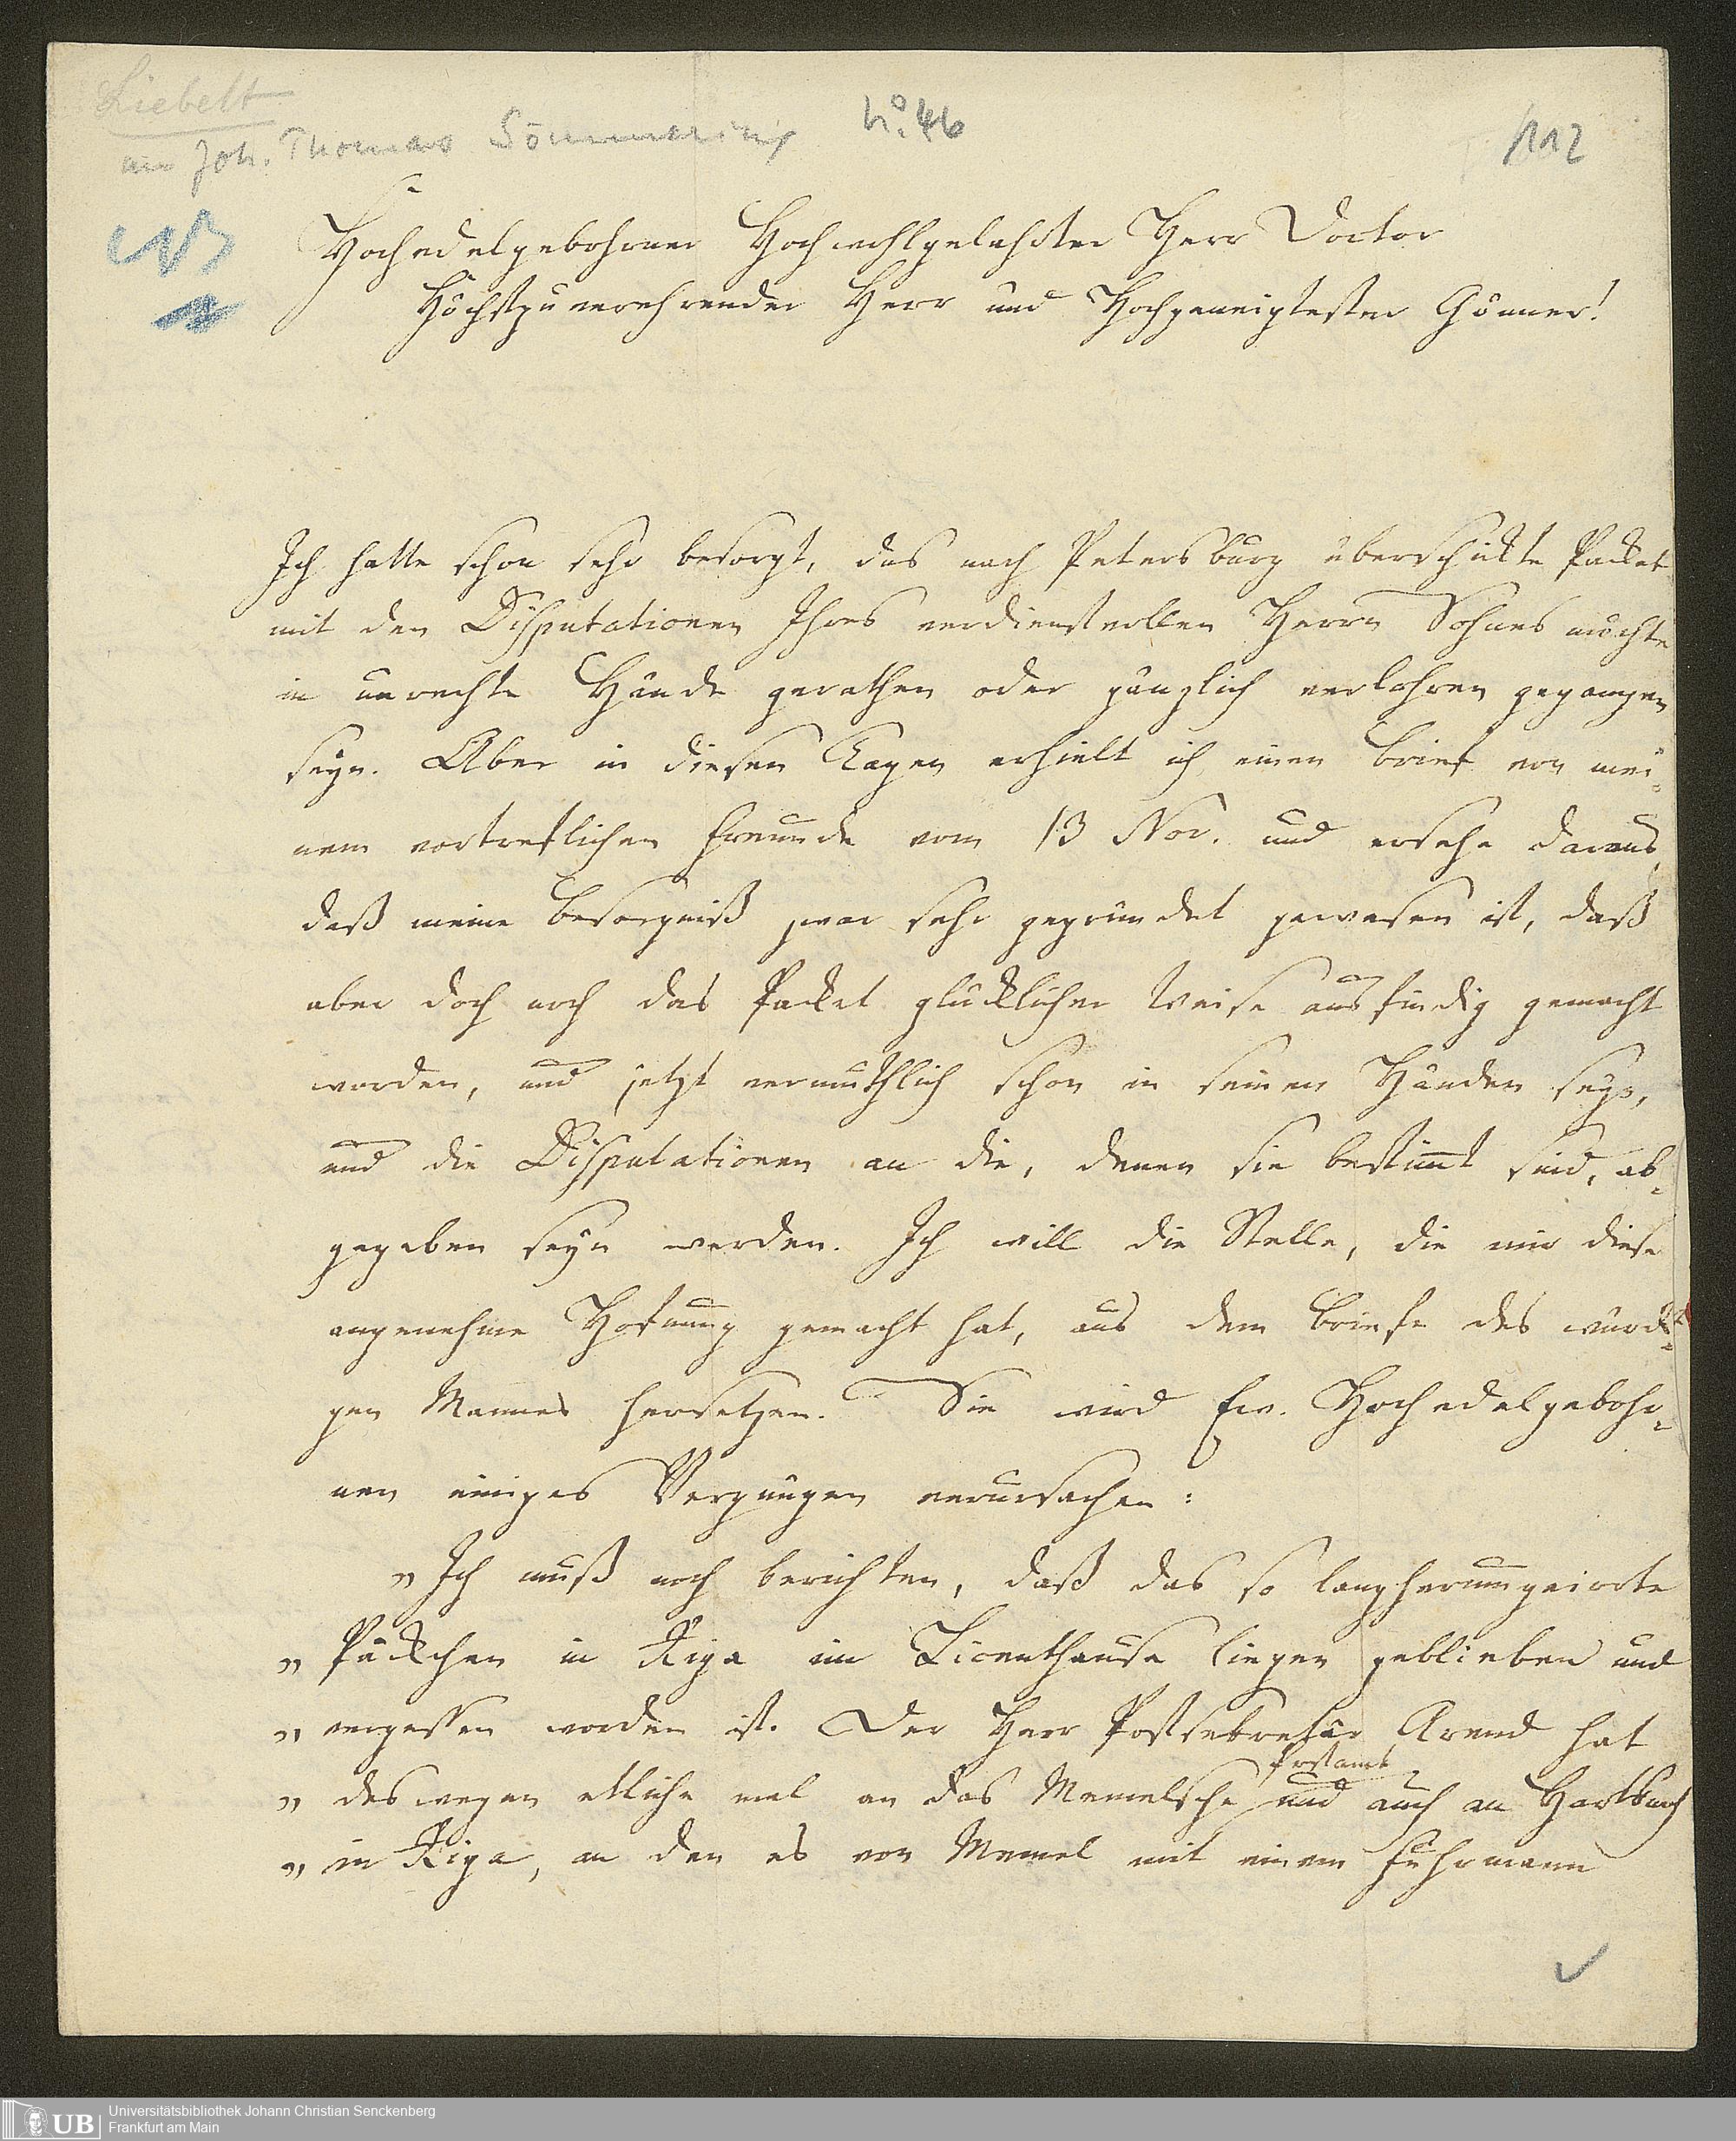 Liebelt
an Joh. Thomas Sömmering
No. 46
112
Hochedelgebohrner Hochwohlgelahrter Herr Doctor
Höchstzuverehrender Herr und Hochgeneigtester Gönner!
Ich hatte schon sehr besorgt, das nach Petersburg überschikte Packet
mit den Disputationen Ihres verdienstvollen Herrn Sohnes möchte
in unrechte Hände gerathen oder gänzlich verlohren gegangen
seyn. Aber in diesen Tagen erhielt ich einen Brief von mei-
nem vortreflichen Freunde vom 13 Nov. und ersehe daraus,
daß meine Besorgniß zwar sehr gegründet gewesen ist, daß
aber doch noch das Packet glücklicher Weise ausfindig gemacht
worden, und jetzt vermuthlich schon in seinen Händen seyn,
und die Disputationen an die, denen sie bestimt sind, ab-
gegeben seyn werden. Ich will die Stelle, die mir diese
angenehme Hofnung gemacht hat, aus dem Briefe des würdi-
gen Mannes hersetzen. Sie wird Ew. Hochedelgebohr-
nen einiges Vergnügen verursachen:
„ Ich muß noch berichten, daß das so langherumgeirrte
„ Päckchen in Riga im Licenthause liegen geblieben und
„ vergessen worden ist. Der Herr Postsekretär Arend hat
Postamt
„ deswegen etliche mal an das Memelsche und auch an Hartknoch
„ in Riga, an den es von Memel mit einem Fuhrmann
UB
Universitätsbibliothek Johann Christian Senckenberg
Frankfurt am Main